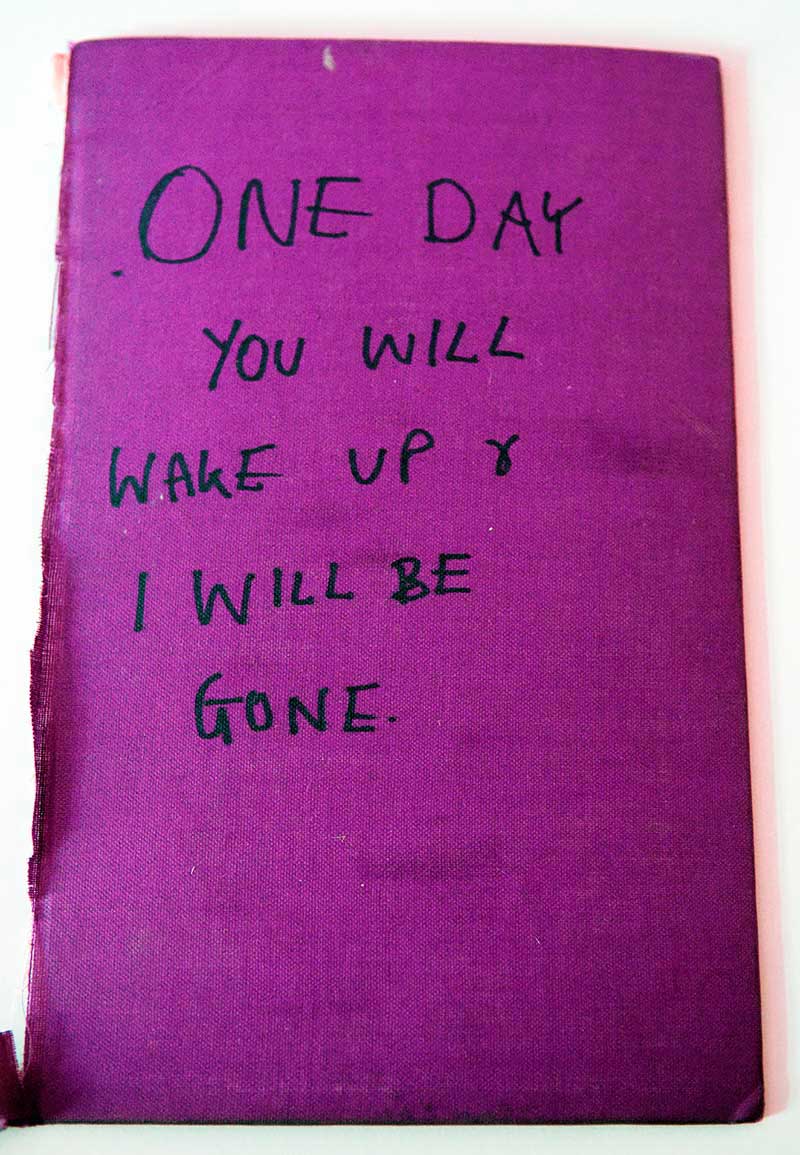 ONE DAY
YOU WILL
WAKE UP &
I WILL BE
GONE.